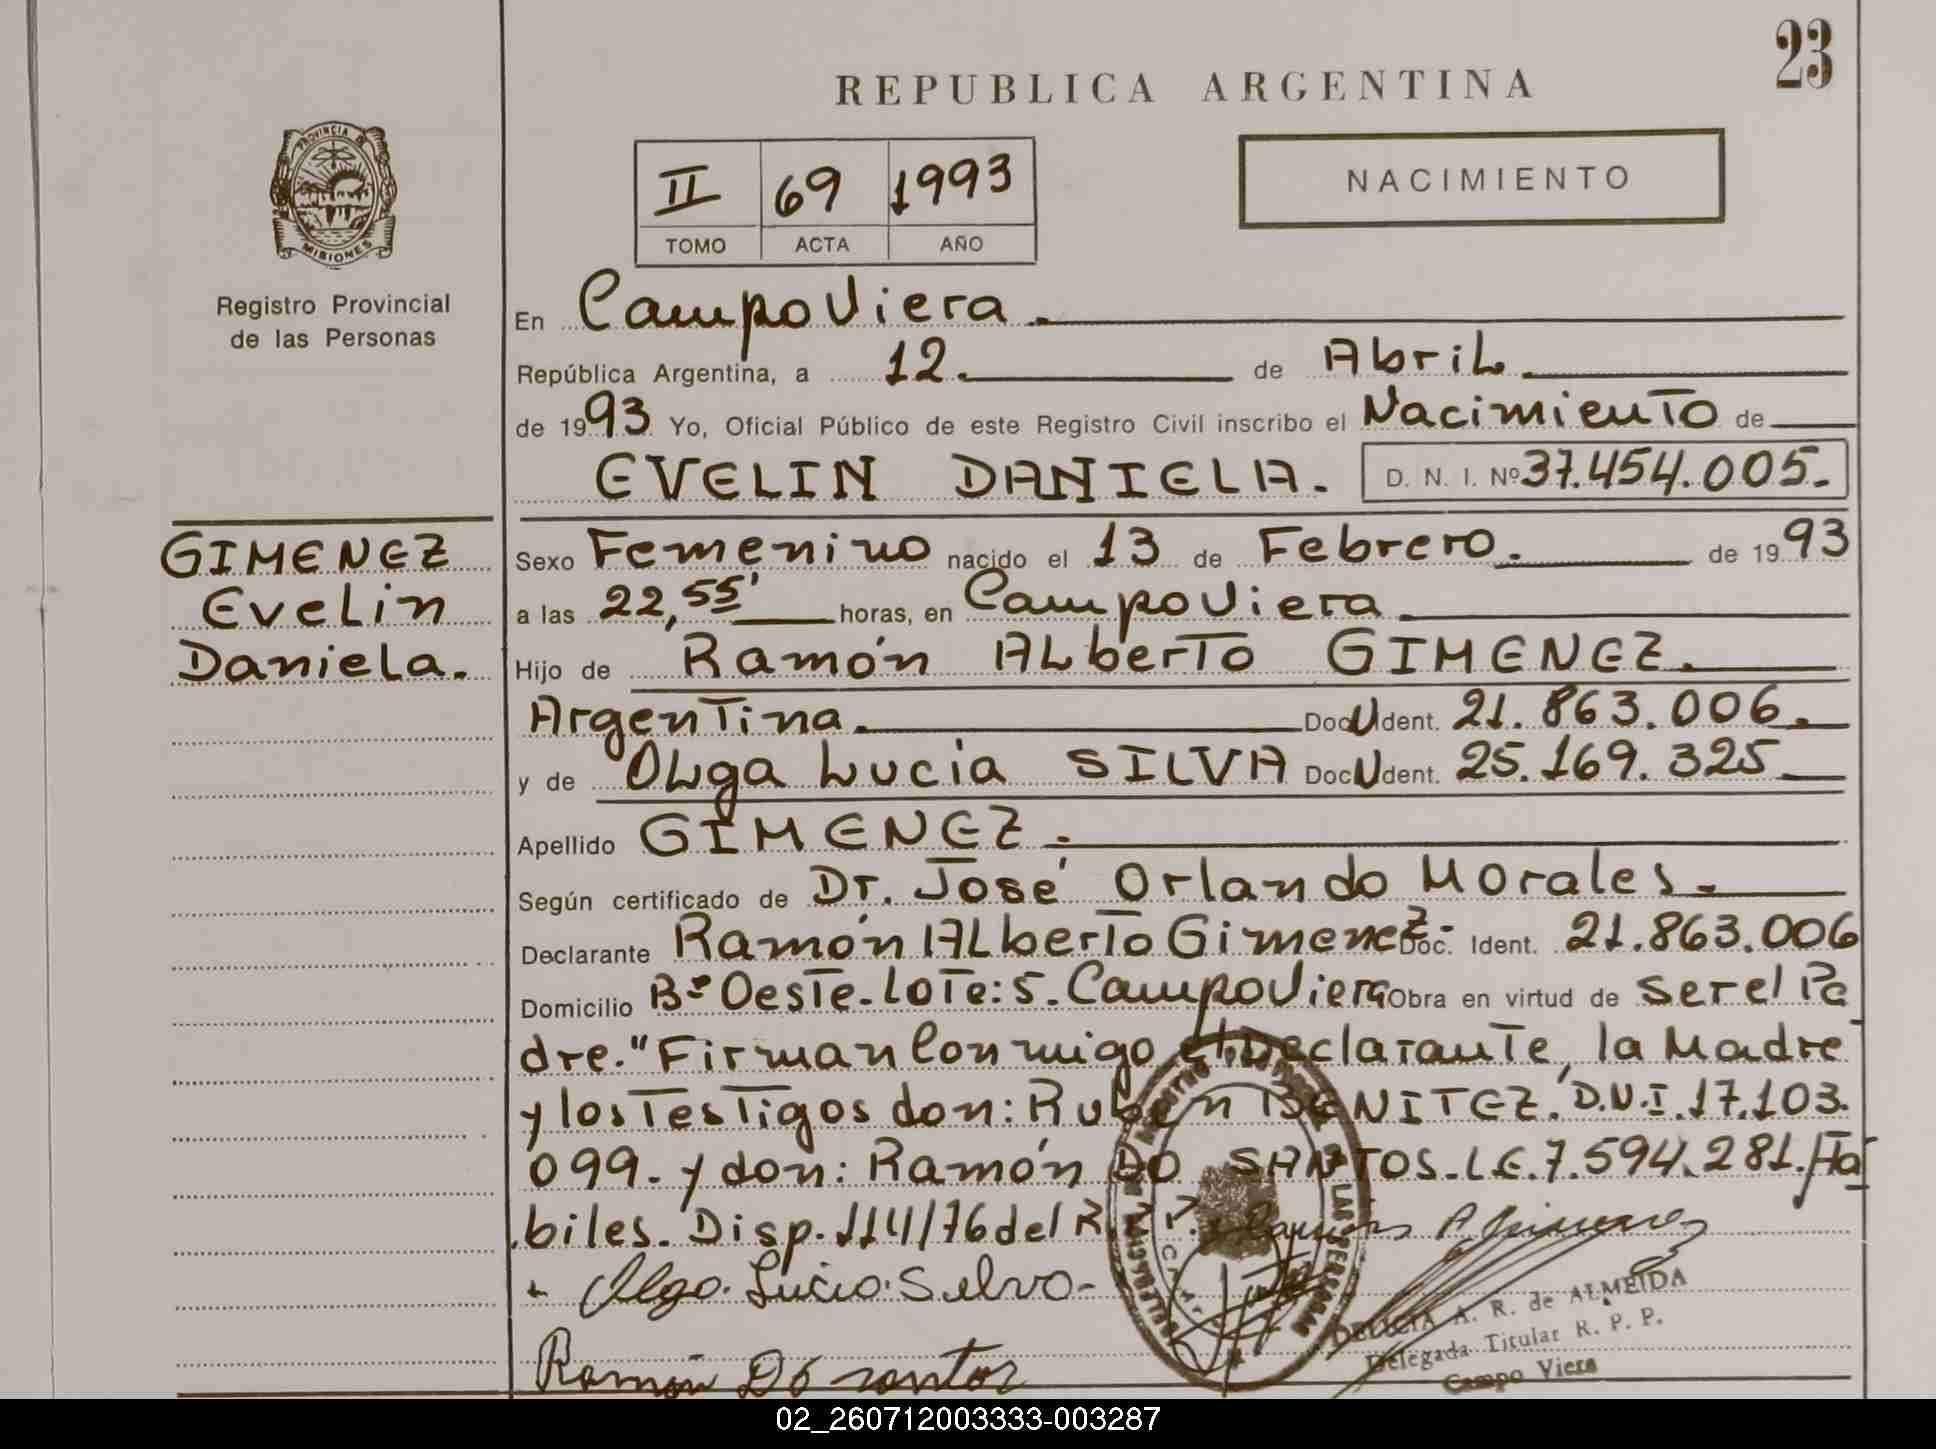 23
REPUBLICA ARGENTINA
PROVINCIA DE
MISIONES
II 69 1993
TOMO ACTA AÑO
NACIMIENTO
Registro Provincial
de las Personas
GIMENEZ
Evelin
Daniela.
En Campo Viera.
República Argentina, a 12. de Abril.
de 1993 Yo, Oficial Público de este Registro Civil inscribo el Nacimiento de
EVELIN DANIELA. D. N. I. Nº 37.454.005.
Sexo Femenino nacido el 13 de Febrero. de 1993
a las 22,55' horas, en Campo Viera
Hijo de Ramón Alberto GIMENEZ.
Argentina. Doc. U Ident. 21.863.006.
y de Olga Lucia SILVA Doc. U Ident. 25.169.325
Apellido GIMENEZ.
Según certificado de Dr. José Orlando Morales.
Declarante Ramón Alberto Gimenez. Doc. Ident. 21.863.006
Domicilio Bº Oeste. Lote: 5. Campo Viera Obra en virtud de ser el Pa
dre." Firman Conmigo el Declarante, la Madre
y los Testigos don: Ruben BENITEZ. D.N.I. 17.103.
099. y don: Ramón DO SANTOS. L.E. 7.594.281. Ha
biles. Disp. 114/76 del R.P.P.
Olga Lucia Silva-
DELICIA A. R. de ALMEIDA
Delegada Titular R. P. P.
Campo Viera
Ramón Do santos
02_260712003333-003287